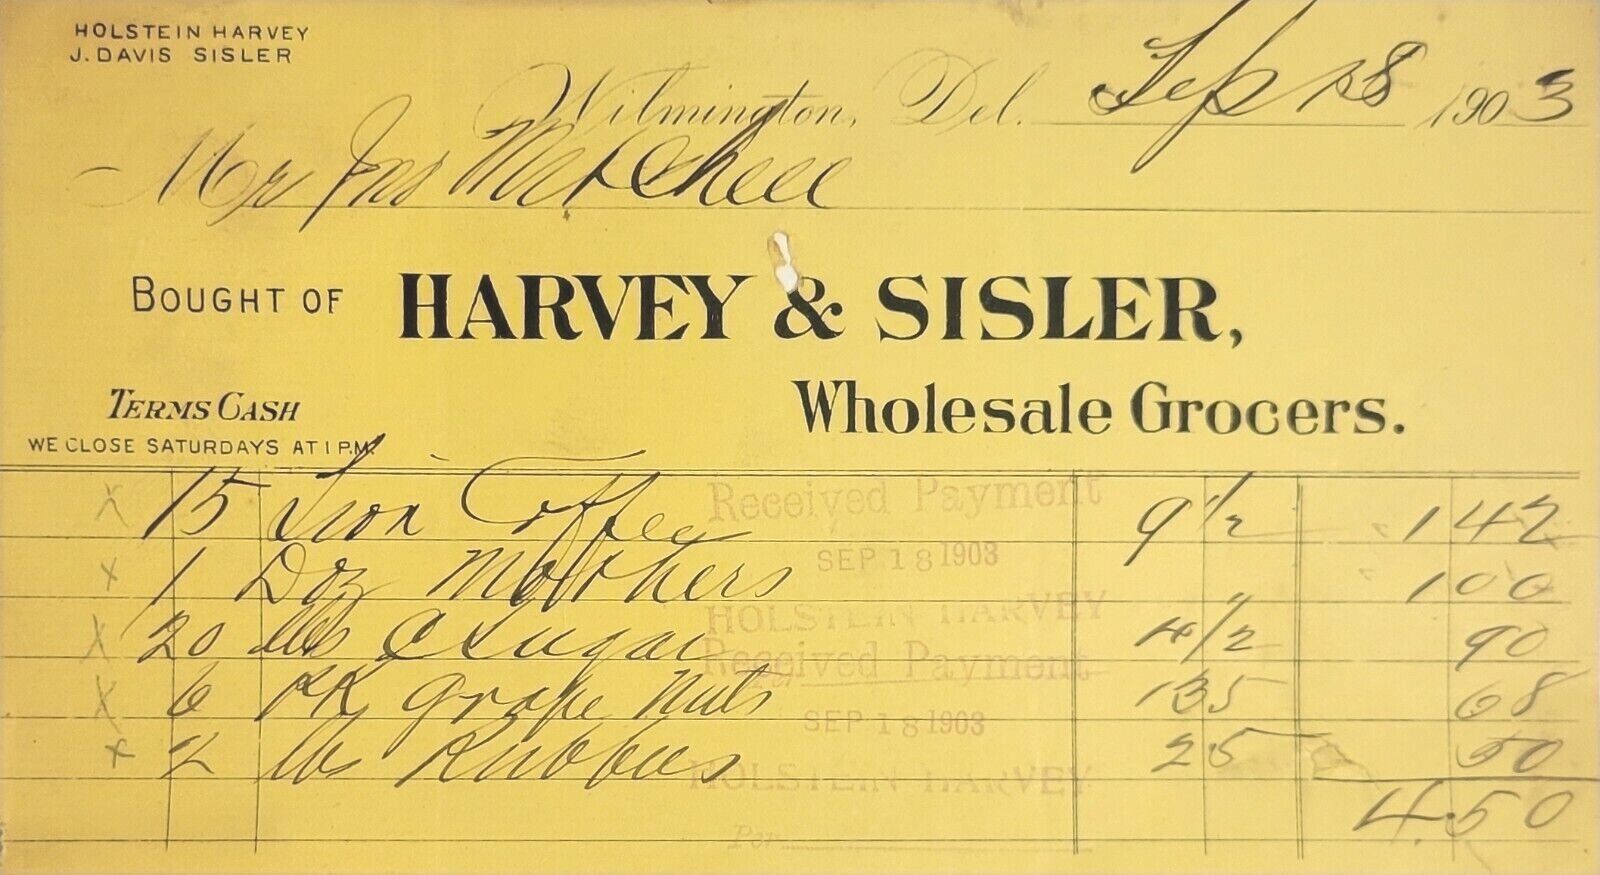 HOLSTEIN HARVEY
J. DAVIS SISLER
Wilmington, Del. Sep 18 1903
Mr Jno Mitchell
BOUGHT OF HARVEY & SISLER,
TERMS CASH
Wholesale Grocers.
WE CLOSE SATURDAYS AT 1 P.M.
x 15 Lion Coffee 9 1/2 1 42
x 1 Doz Mothers 1 00
x 20 lbs C Sugar 4 1/2 90
x 6 PK Grape Nuts 135 68
x 2 lbs Rubbers 25 50
4.50
Received Payment
SEP 18 1903
HOLSTEIN HARVEY
Received Payment
SEP 18 1903
HOLSTEIN HARVEY
Per